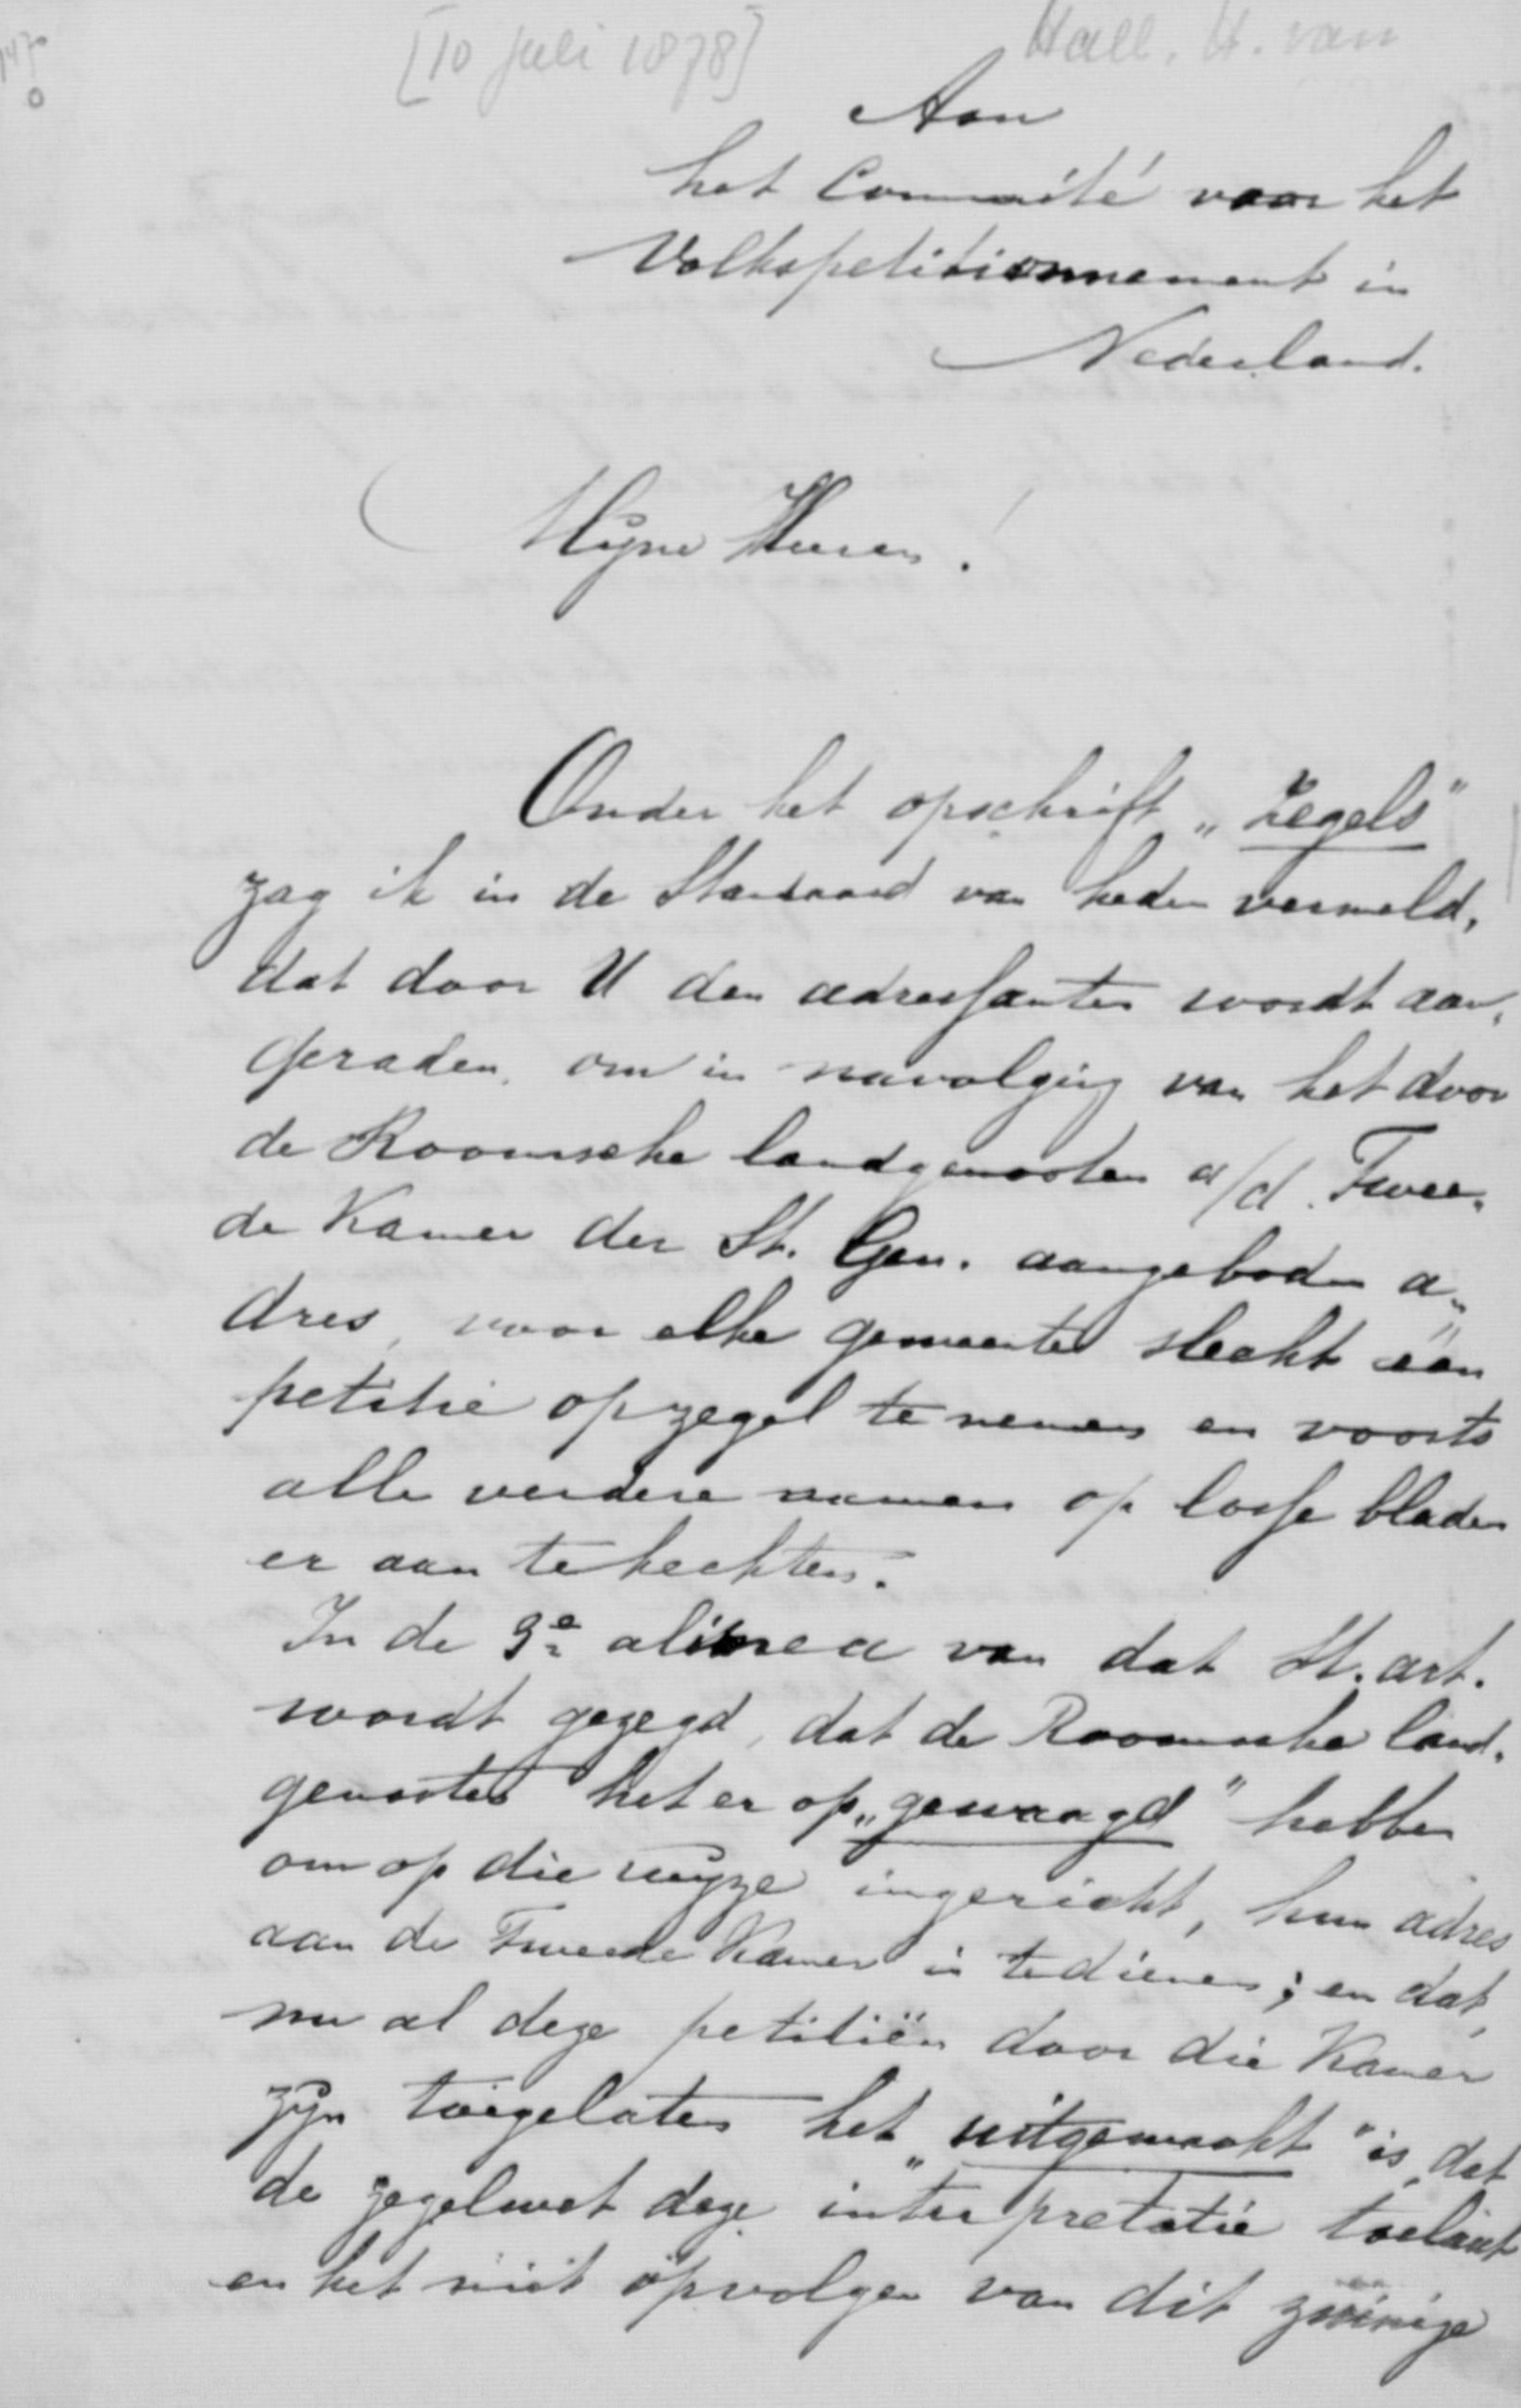 [10 Juli 1878] Hall, H. van
Aan
het Committé voor het
Volkspetitionnement in
Nederland.
Mijne Heeren!
Onder het opschrift „Zegels"
zag ik in de Standaard van heden vermeld,
dat door U den adressanten wordt aan„
geraden, om in navolging van het door
de Roomsche landgenooten a/d. Twee„
de Kamer der St. Gen. aangeboden a„
dres, voor elke gemeente slecht één
petitie op zegel te nemen en voorts
alle verdere namen op losse bladen
er aan te hechten.
In de 3e alinea van dat St. art.
wordt gezegd, dat de Roomsche land„
genooten het er op „gewaagd" hebben
om op die wijze ingericht, hun adres
aan de Tweede Kamer in te dienen; en dat,
nu al deze petitiën door die Kamer
zijn toegelaten het „uitgemaakt" is, dat
de zegelwet deze interpretatie toelaat
en het niet opvolgen van dit zuinige